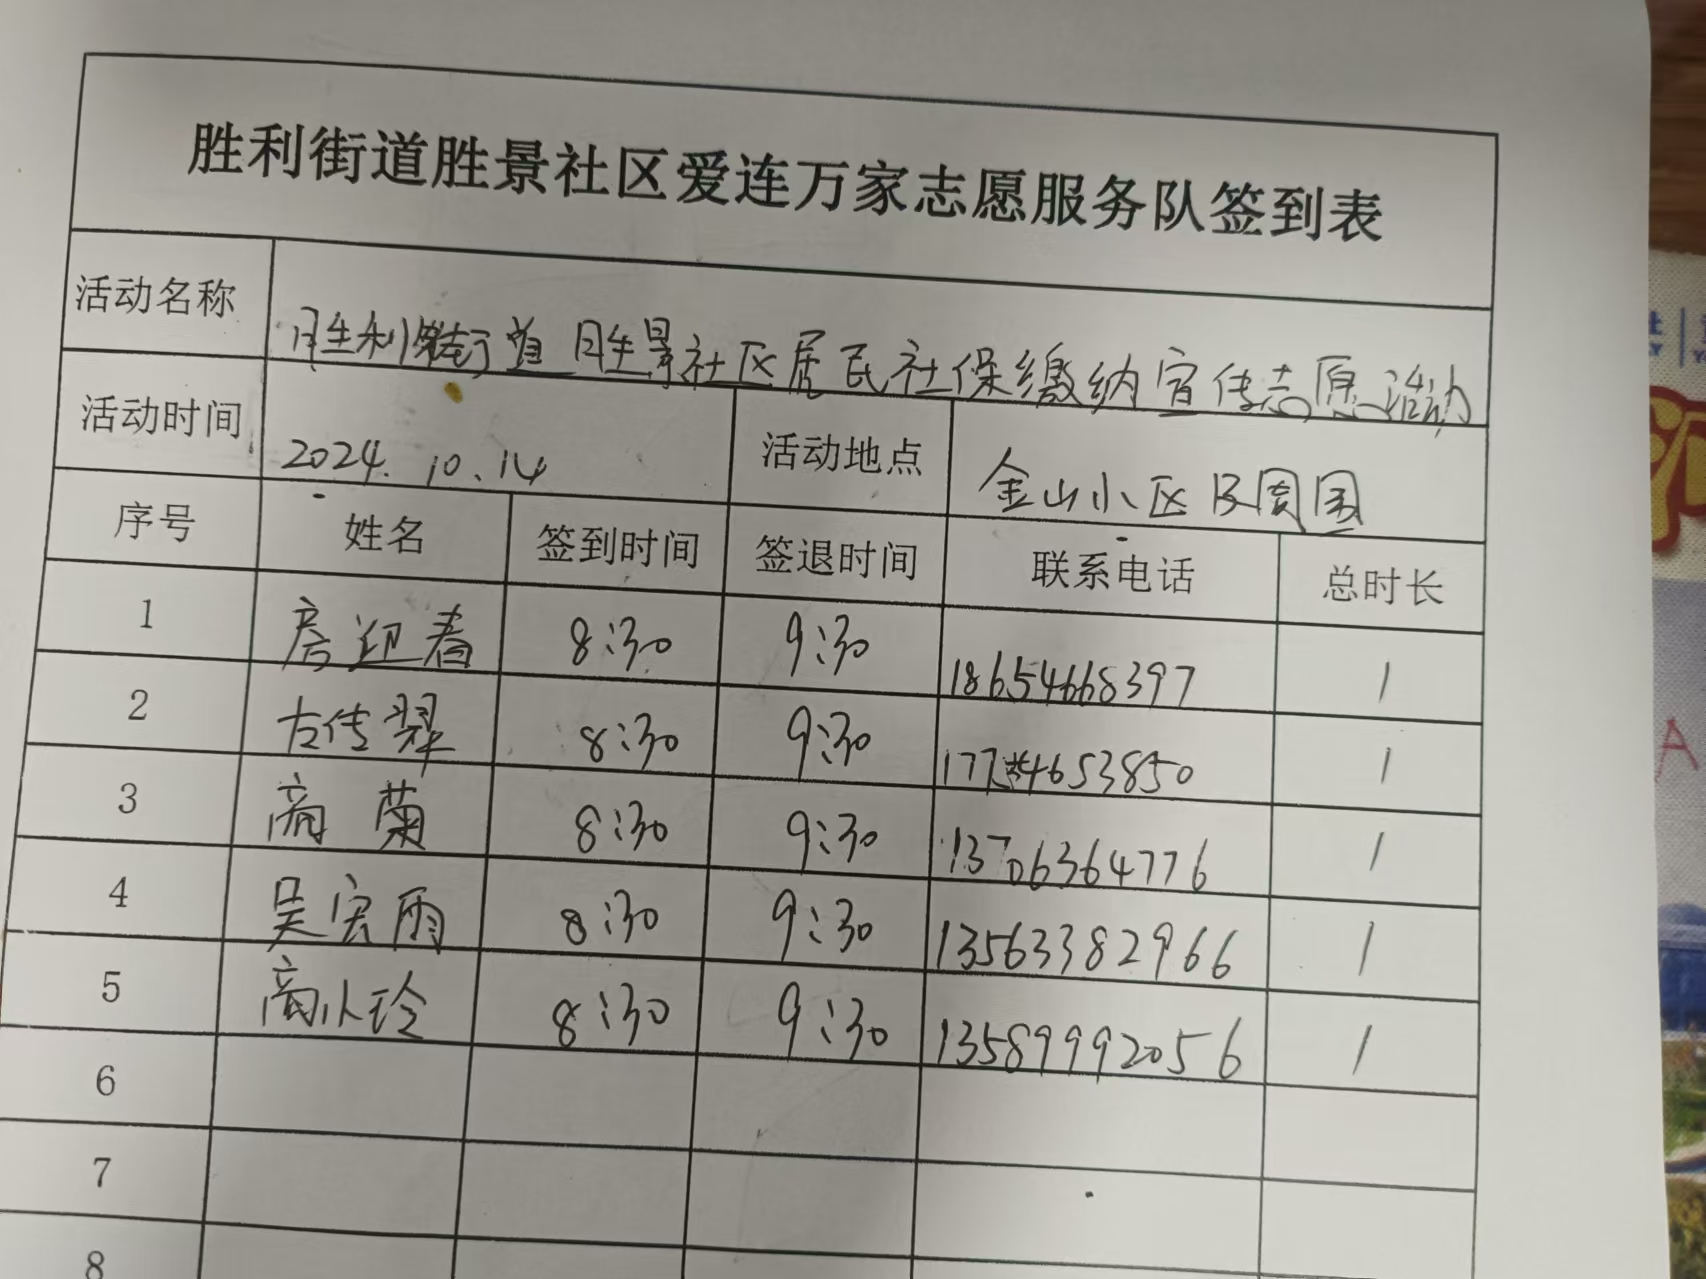 胜利街道胜景社区爱连万家志愿服务队签到表
活动名称 胜利街道胜景社区居民社保缴纳宣传志愿活动
活动时间 2024.10.14 活动地点 金山小区及周围
序号 姓名 签到时间 签退时间 联系电话 总时长
1 房迎春 8:30 9:30 18654668397 1
2 古传翠 8:30 9:30 1
3 商菊 8:30 9:30 13706364776 1
4 吴宏雨 8:30 9:30 13563382966 1
5 商小玲 8:30 9:30 13589992056 1
6
7
8
A